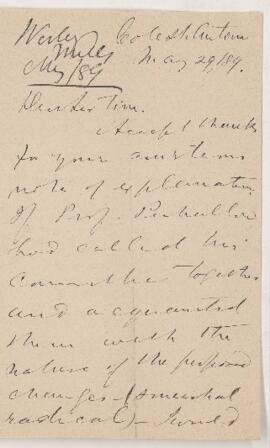 Wesley
Mills
May/89
May 29, 89.
Dear Sir Wm.
Accept thanks
for your courteous
note of explanation.
If Prof. Penhallow
had called his
Committee together
and acquainted
them with the
nature of the proposed
changes - (somewhat
radical) -